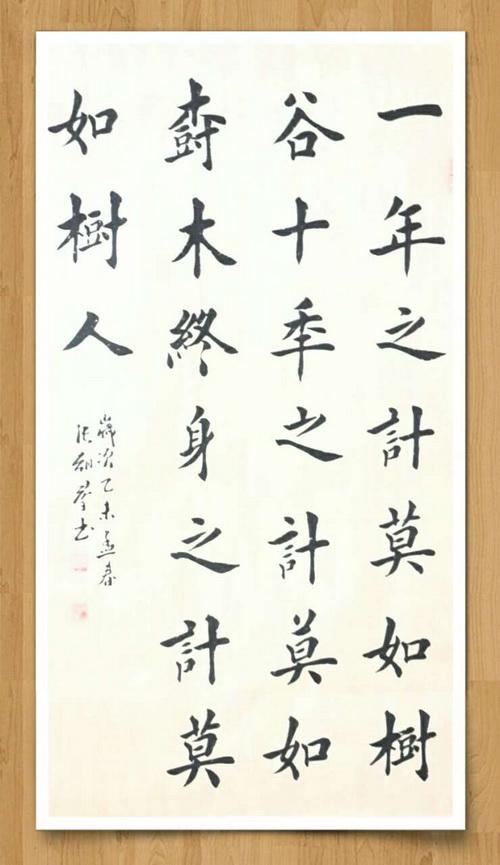 一年之計莫如樹
谷十秊之計莫如
樹木終身之計莫
如樹人
歲次乙未孟春
張書